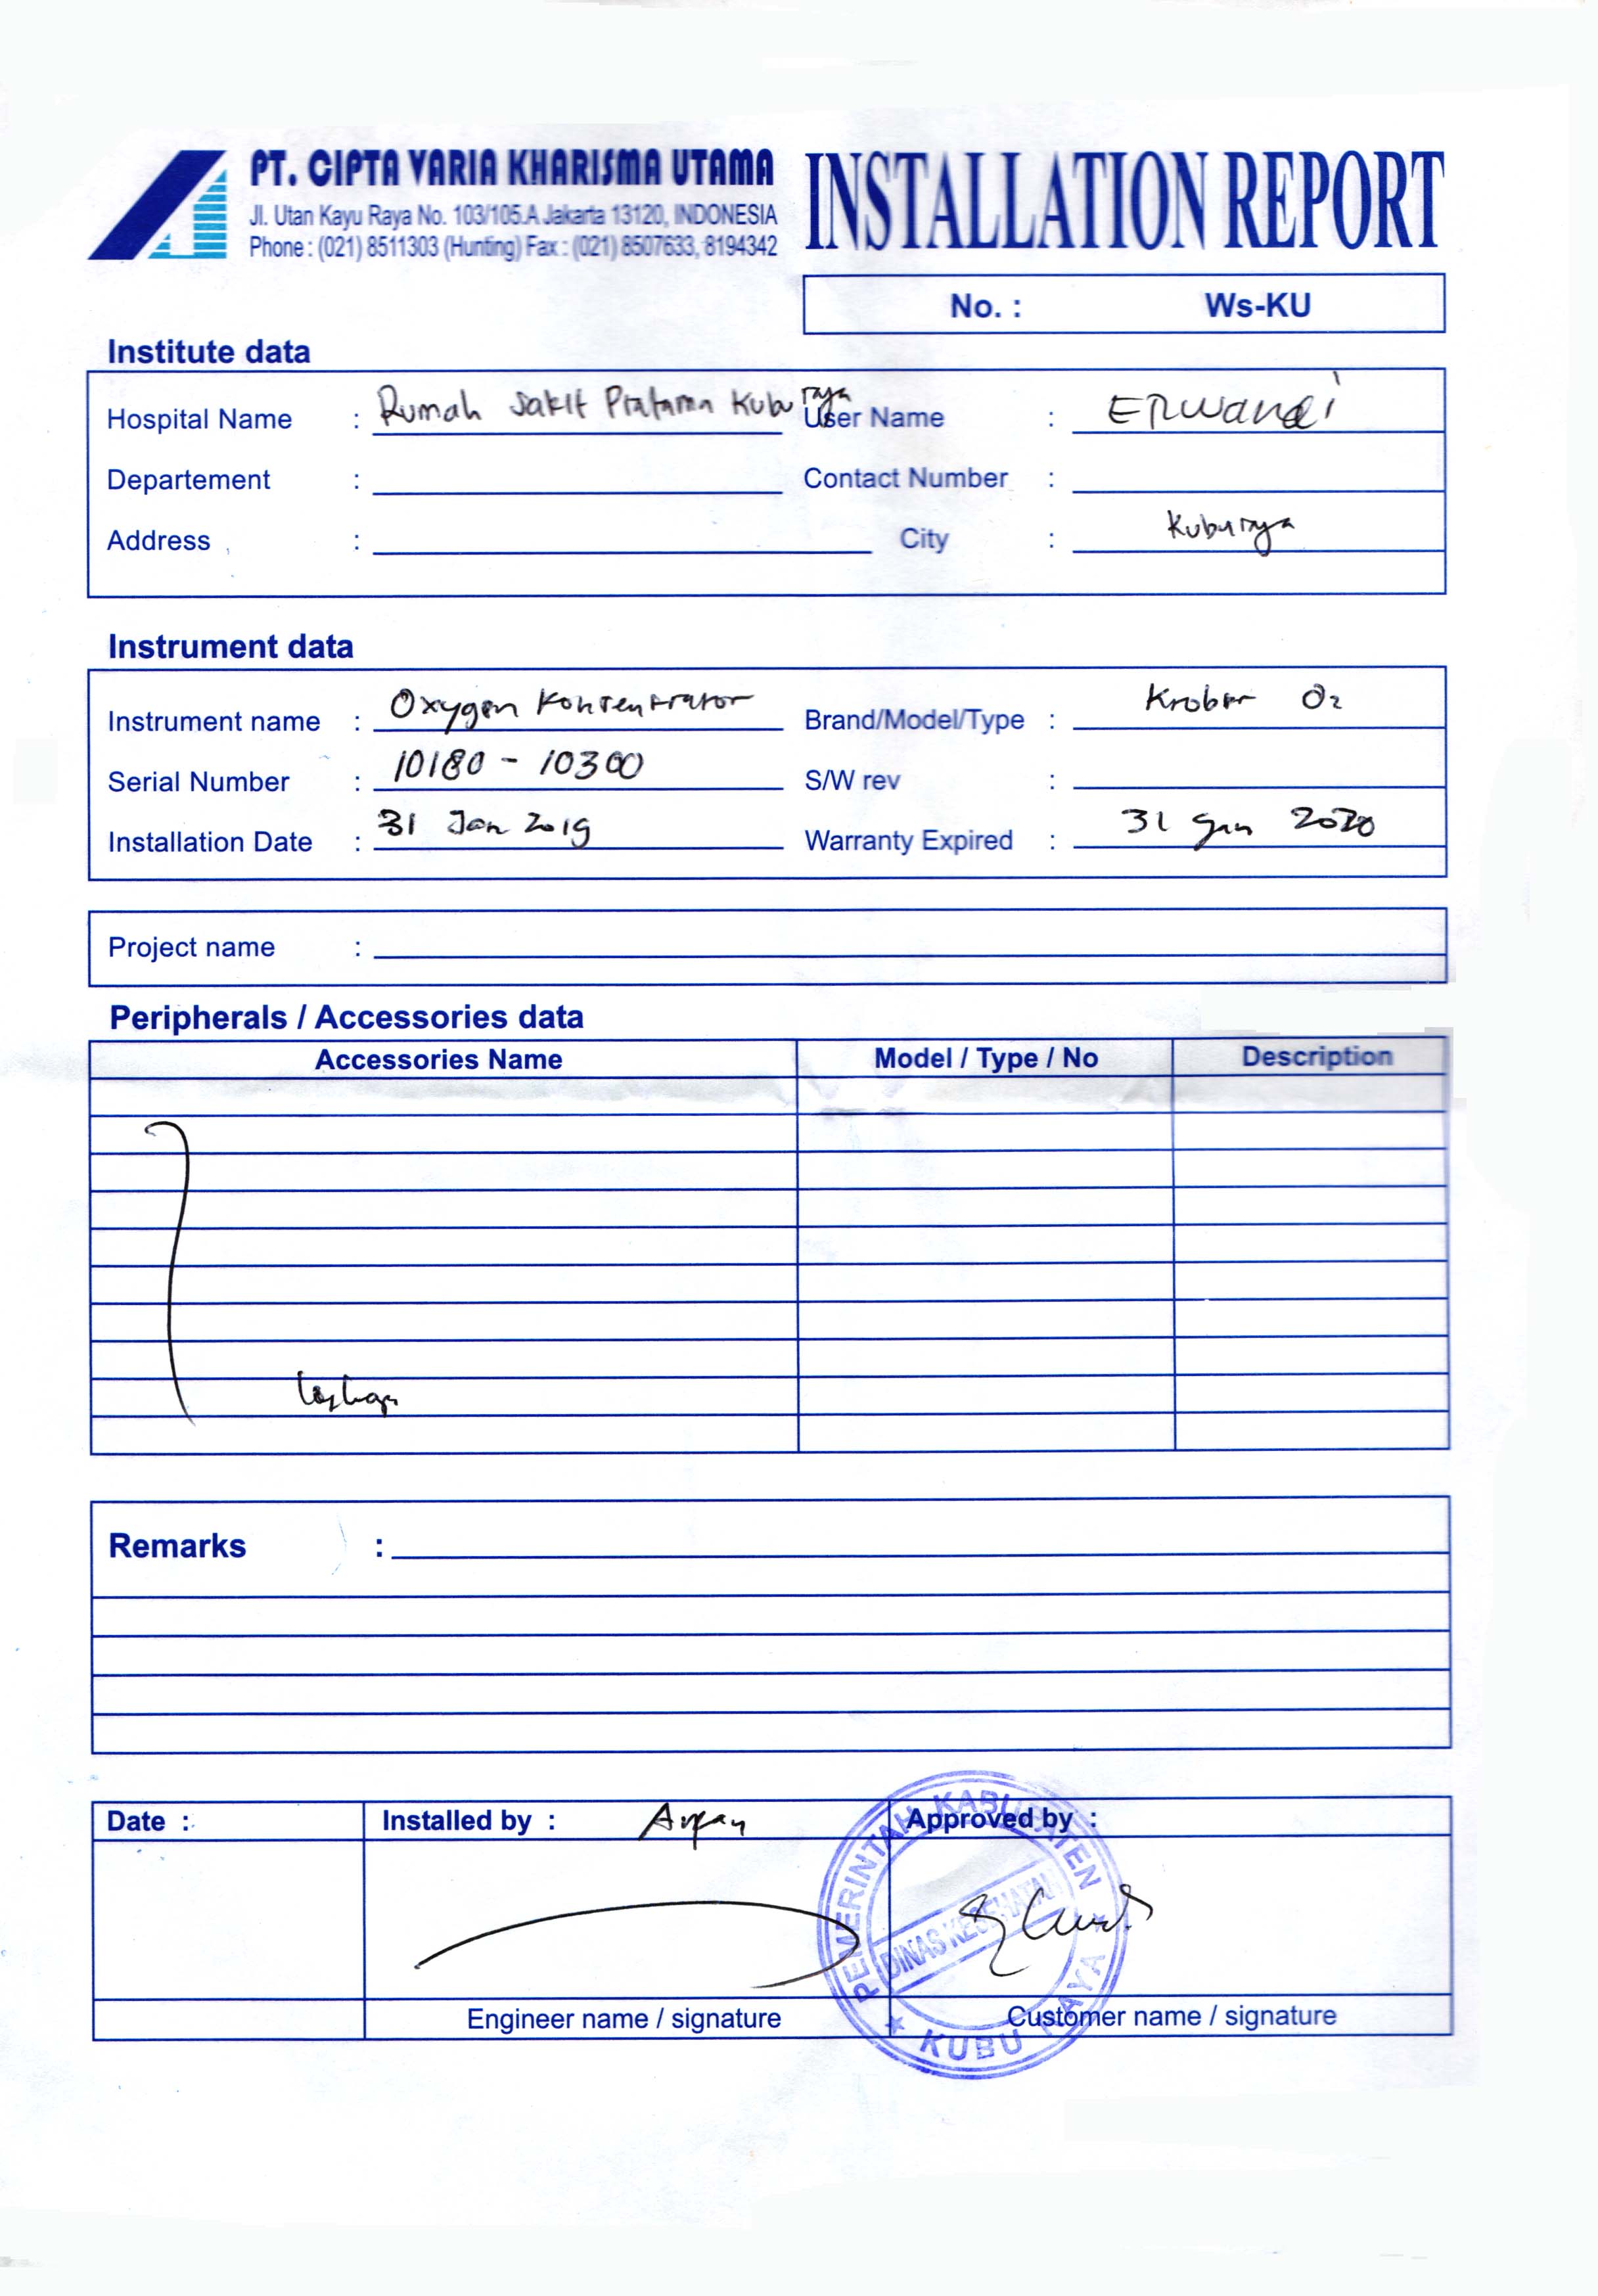 PT. CIPTA VARIA KHARISMA UTAMA
Jl. Utan Kayu Raya No. 103/105.A Jakarta 13120, INDONESIA
Phone : (021) 8511303 (Hunting) Fax : (021) 8507633, 8194342
INSTALLATION REPORT
No. : Ws-KU
Institute data
Hospital Name : Rumah Sakit Pratama Kubu raya User Name : ERwandi
Departement : Contact Number :
Address : City : Kuburaya
Instrument data
Instrument name : Oxygen Konsentrator Brand/Model/Type : Krober O2
Serial Number : 10180 - 10300 S/W rev :
Installation Date : 31 Jan 2019 Warranty Expired : 31 Jan 2020
Project name :
Peripherals / Accessories data
Accessories Name Model / Type / No Description
Remarks :
Date : Installed by : Arfan Approved by :
PEMERINTAH KABUPATEN
DINAS KESEHATAN
KUBU RAYA
Engineer name / signature Customer name / signature